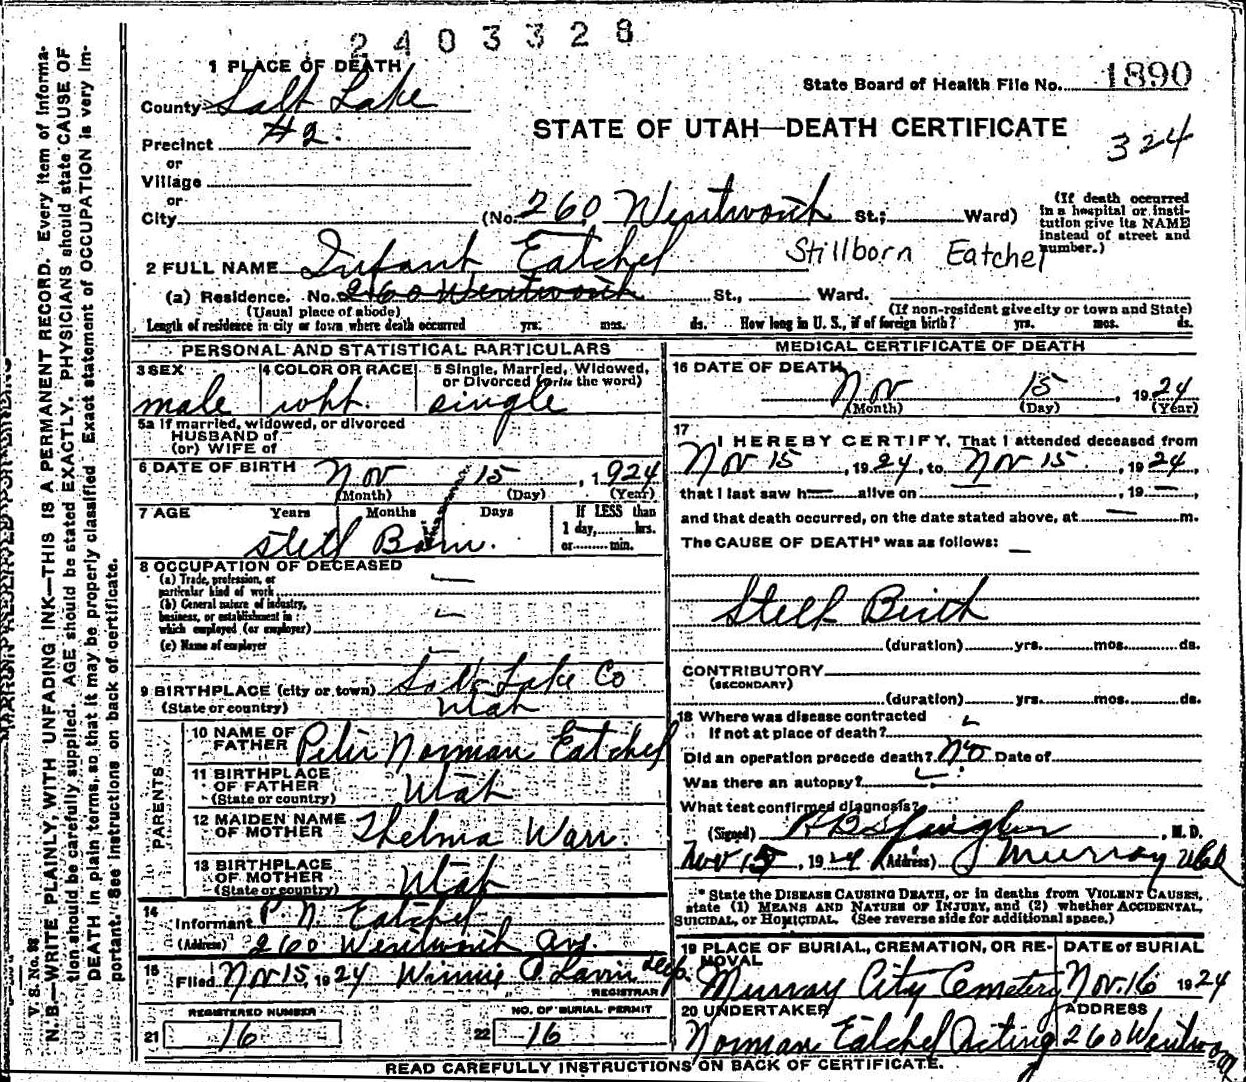 2403328
1 PLACE OF DEATH
State Board of Health File No. 1890
County Salt Lake
STATE OF UTAH—DEATH CERTIFICATE
324
Precinct #2.
or
Village
or
City (No. 260 Wentworth St.; Ward)
(If death occurred in a hospital or institution give its NAME instead of street and number.)
2 FULL NAME Infant Eatchel
Stillborn Eatchel
(a) Residence. No. 260 Wentworth St., Ward.
(Usual place of abode)
(If non-resident give city or town and State)
Length of residence in city or town where death occurred yrs. mos. ds. How long in U. S., if of foreign birth? yrs. mos. ds.
PERSONAL AND STATISTICAL PARTICULARS
3 SEX male
4 COLOR OR RACE wht.
5 Single, Married, Widowed, or Divorced (write the word) single
5a If married, widowed, or divorced
HUSBAND of
(or) WIFE of
6 DATE OF BIRTH Nov 15, 1924
(Month) (Day) (Year)
7 AGE Years Months Days
If LESS than
1 day, hrs.
or min.
Still Born.
8 OCCUPATION OF DECEASED
(a) Trade, profession, or
particular kind of work
(b) General nature of industry,
business, or establishment in
which employed (or employer)
(c) Name of employer
9 BIRTHPLACE (city or town) Salt Lake Co
(State or country) Utah
PARENTS
10 NAME OF FATHER Peter Norman Eatchel
11 BIRTHPLACE OF FATHER (State or country) Utah
12 MAIDEN NAME OF MOTHER Thelma Warr.
13 BIRTHPLACE OF MOTHER (State or country) Utah
14
Informant P. N. Eatchel
(Address) 260 Wentworth Ave.
15 Filed Nov 15, 1924 Winnie Dep.
REGISTRAR
REGISTERED NUMBER
21 16
NO. OF BURIAL PERMIT
22 16
MEDICAL CERTIFICATE OF DEATH
16 DATE OF DEATH
Nov 15, 1924
(Month) (Day) (Year)
17
I HEREBY CERTIFY, That I attended deceased from
Nov 15, 1924, to Nov 15, 1924,
that I last saw h— alive on —, 19—,
and that death occurred, on the date stated above, at — m.
The CAUSE OF DEATH* was as follows: —
Still Birth
(duration) yrs. mos. ds.
CONTRIBUTORY
(SECONDARY)
(duration) yrs. mos. ds.
18 Where was disease contracted
If not at place of death?
Did an operation precede death? No Date of
Was there an autopsy?
What test confirmed diagnosis?
(Signed) , M. D.
Nov 15, 1924 (Address) Murray Utah
* State the DISEASE CAUSING DEATH, or in deaths from VIOLENT CAUSES,
state (1) MEANS AND NATURE OF INJURY, and (2) whether ACCIDENTAL,
SUICIDAL, or HOMICIDAL. (See reverse side for additional space.)
19 PLACE OF BURIAL, CREMATION, OR REMOVAL
Murray City Cemetery
DATE of BURIAL
Nov. 16 1924
20 UNDERTAKER
Norman Eatchel Acting
ADDRESS
260 Wentworth
READ CAREFULLY INSTRUCTIONS ON BACK OF CERTIFICATE.
V S. No. 98
N. B.—WRITE PLAINLY, WITH UNFADING INK—THIS IS A PERMANENT RECORD. Every item of information should be carefully supplied. AGE should be stated EXACTLY. PHYSICIANS should state CAUSE OF DEATH in plain terms, so that it may be properly classified. Exact statement of OCCUPATION is very important. See instructions on back of certificate.